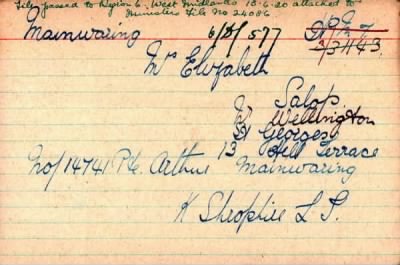 File passed to Region 6. West Midlands 18.6.20 attached to
Ministers File No 24086
Mainwaring 6/8/577
3/3H43.
Mrs Elizabeth
Salop
Wellington
St Georges
13 Hill Terrace
No/14741 Pte. Arthur Mainwaring
K Shropshire L I.